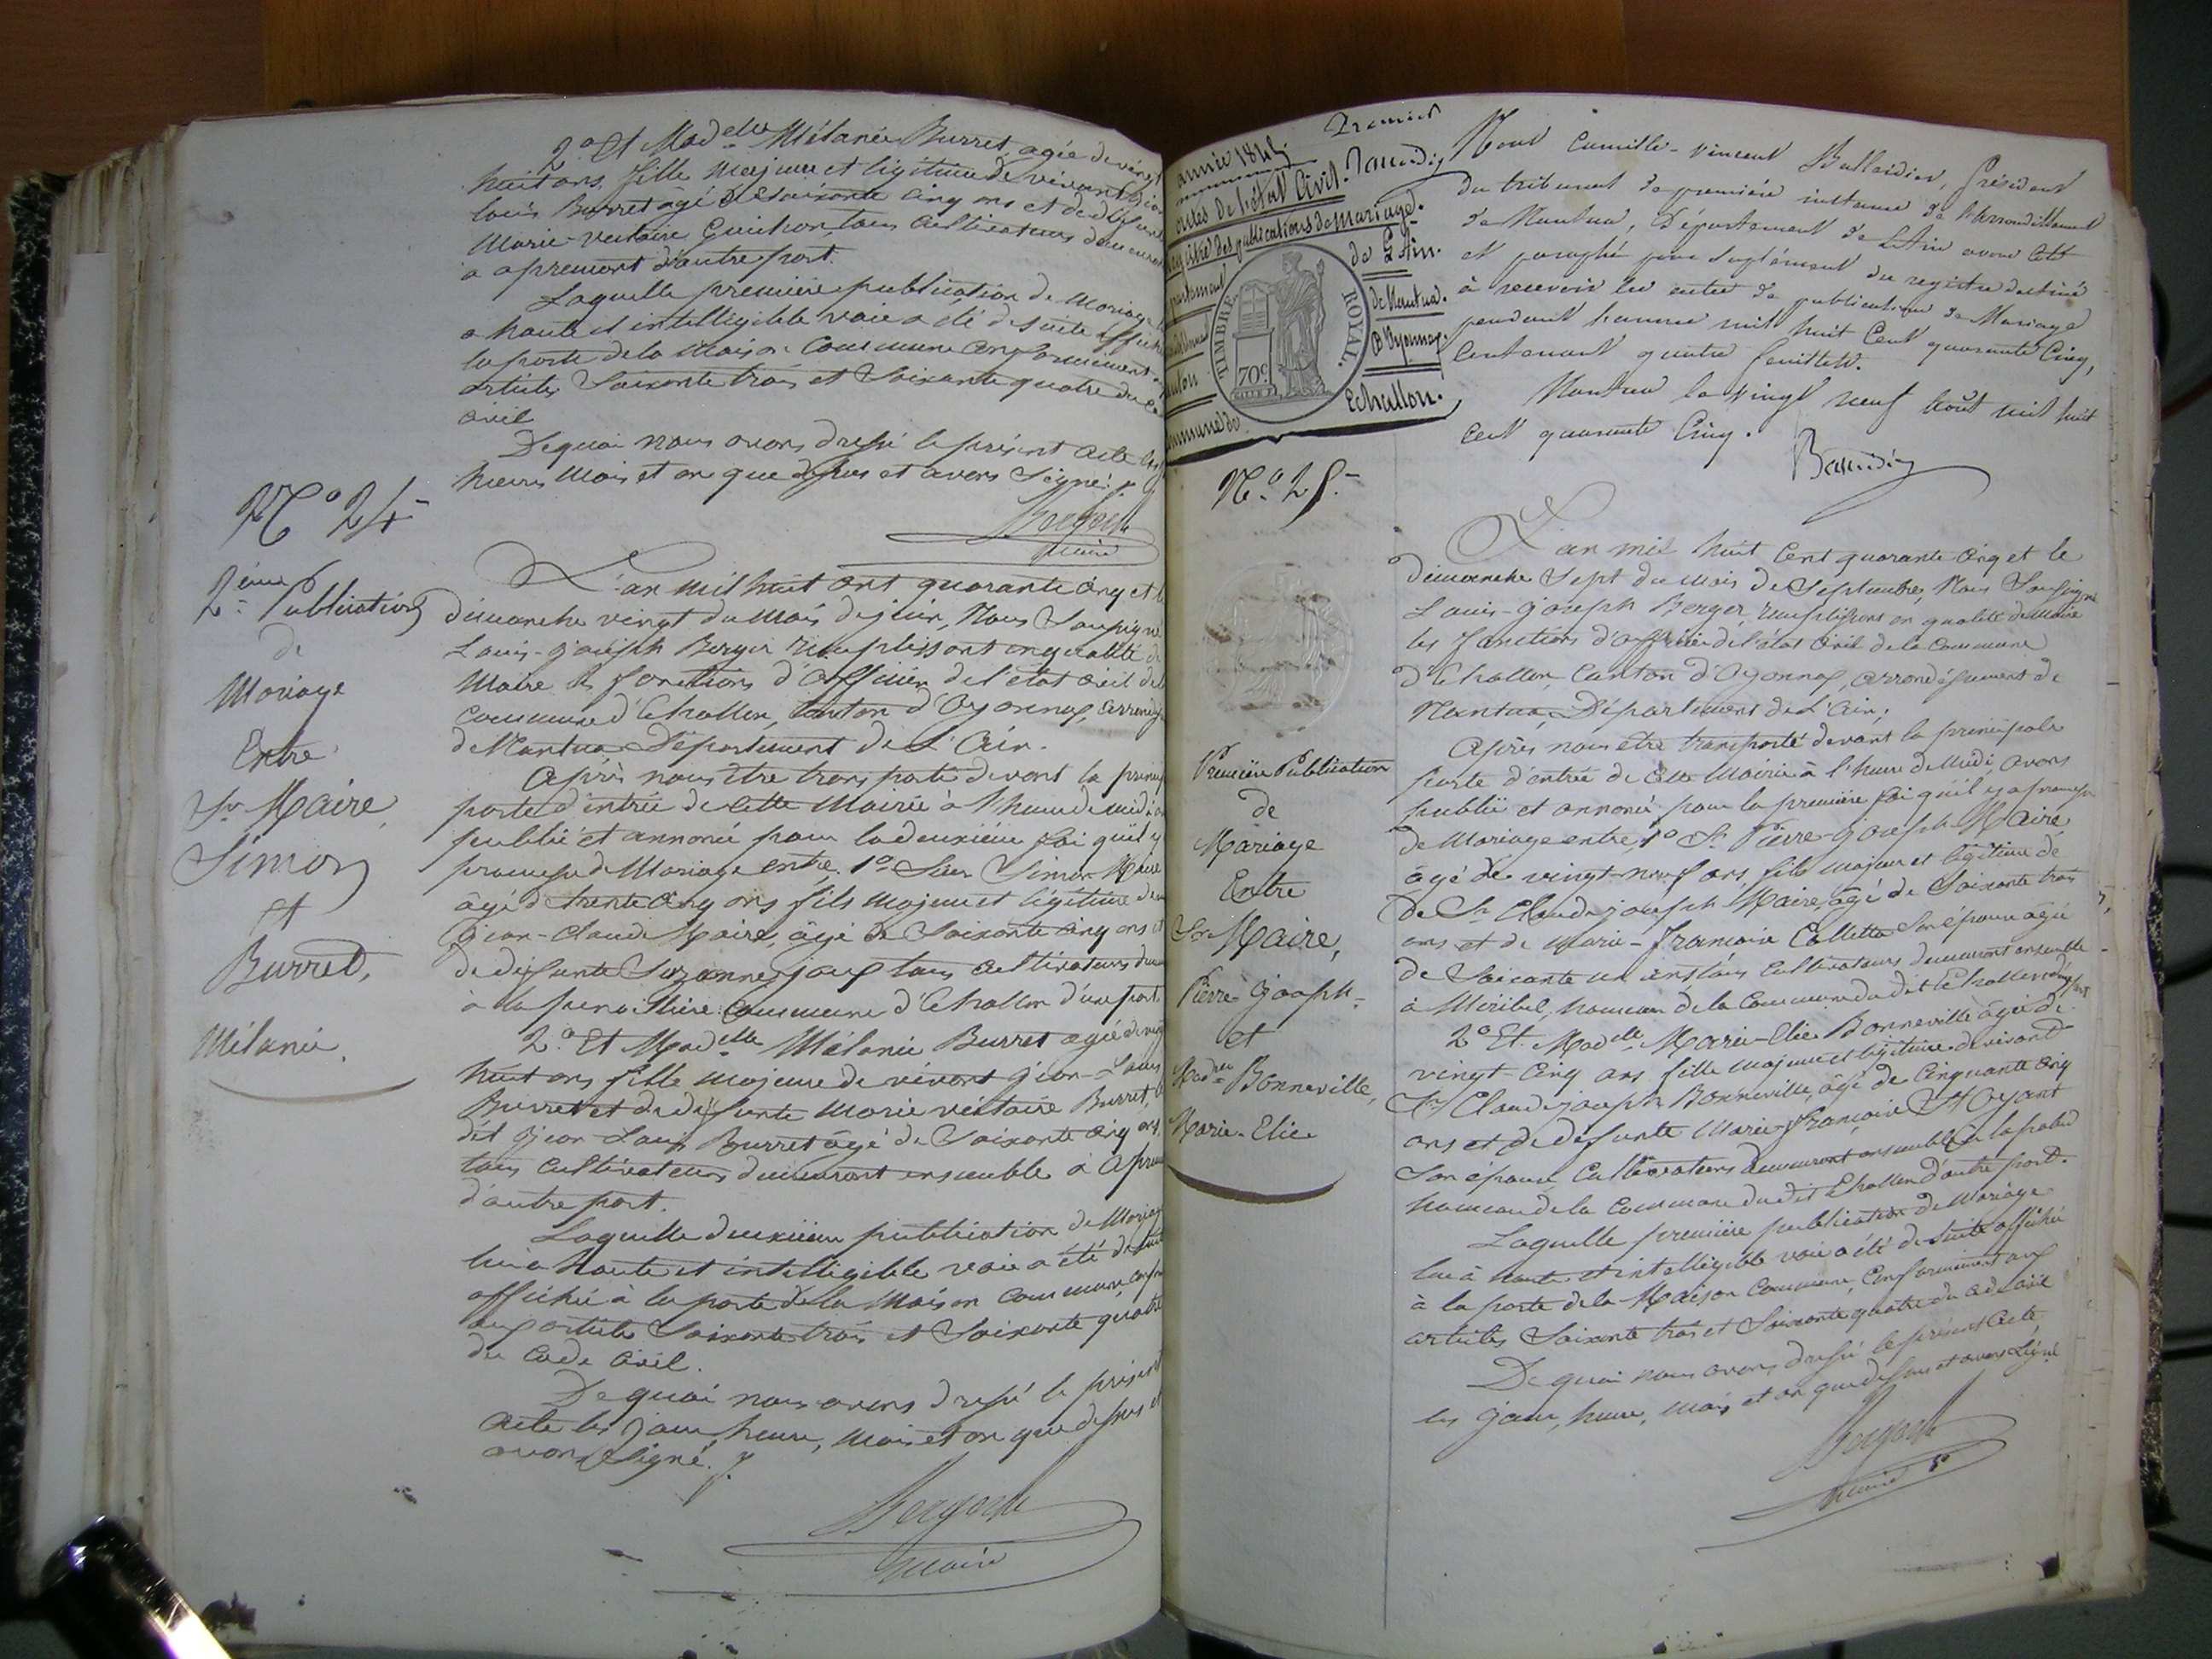 2.o Et Mad.elle Mélanie Burret, agée de vingt
huit ans, fille majeure et légitime de vivant Jean
Louis Burret âgé de soixante cinq ans et de défunte
Marie-Victoire Guichon tous cultivateurs demeurant
à apremont d'autre part.
Laquelle première publication de Mariage
a haute et intelligible voie a été de suite affichée
la porte de la Maison Commune conformément
articles Soixante trois et Soixante quatre du Co
civil
De quoi nous avons dressé le présent acte les
heure mois et an que dessus et avons Signé.
Berger
maire
N.o 24
2.ème Publication
de
Mariage
Entre
Sr Maire,
Simon
Et
Burret,
Mélanie.
L'an mil huit cent quarante cinq et le
dimanche vingt du mois de juin, Nous Soussigné
Louis-Joseph Berger remplissant en qualité de
Maire les fonctions d'officier de l'état civil de la
commune d'Echallon, Canton d'Oyonnax, arrondis
de Nantua Département de L'Ain.
Après nous être transporté devant la princip
porte d'entrée de cette Mairie à l'heure de midi
publié et annoncé pour la deuxième foi qu'il y
promesse de Mariage entre. 1.o Sieur Simon Maire
âgé de trente cinq ans fils majeur et légitime de
Jean-Claude Maire, âgé de Soixante cinq ans et
de défunte Suzanne joux tous cultivateurs dem
à la commune d'Echallon d'une part.
2.o Et Mad.elle Mélanie Burret agée de vingt
huit ans fille majeure de vivant Jean-Louis
Burret et de défunte Marie victoire Burret,
dit Jean-Louis Burret âgé de Soixante cinq ans,
tous cultivateurs demeurant ensemble à Aprem
d'autre part.
Laquelle deuxième publication de Mariag
lue à haute et intelligible voie a été de suite
affichée à la porte de la Maison Commune, conform
aux articles Soixante trois et Soixante quatre
du Code Civil.
De quoi nous avons dressé le présent
acte les jour, heure, mois et an que dessus et
avons Signé.
Berger
maire
année 1845. Premier
actes de l'état Civil.
registre des publications de mariage.
de L'Ain.
de Nantua.
d'Oyonnax
Echallon.
TIMBRE ROYAL.
70c
Nous Camille-Vincent , Président
du tribunal de première instance de l'arrondissement
de Nantua, Département de L'Ain avons coté
et paraphé pour Suplément du registre destiné
à recevoir les actes de publication de Mariage
pendant l'année mil huit cent quarante cinq,
Contenant quatre feuillets.
Nantua le vingt neuf Août mil huit
cent quarante Cinq.
N.o 25.
Première Publication
de
Mariage
Entre
Sr Maire,
Pierre-Joseph-
et
Bonneville,
Marie-Elie
L'an mil huit cent quarante cinq et le
dimanche Sept du mois de Septembre, Nous Soussigné
Louis-Joseph Berger, remplissons en qualité de Maire
les fonctions d'officier de l'état civil de la commune
d'Echallon, Canton d'Oyonnax, arrondissement de
Nantua, Département de L'Ain;
Après nous être transporté devant la principale
porte d'entrée de cette Mairie à l'heure de Midi, avons
publié et annoncé pour la première foi qu'il y a promesse
de Mariage entre, 1.o Sr Pierre-Joseph Maire,
âgé de vingt-neuf ans, fils majeur et légitime de
de Sr Claude joseph Maire, âgé de Soixante trois
ans et de Marie-Françoise Colletta Son épouse âgée
de Soixante un ans, tous cultivateurs demeurant ensemble
à Miribel, hameau de la Commune du dit Echallon d'une part
2.o Et Mad.elle Marie-Elie Bonneville âgée de
vingt cinq ans fille majeure et légitime de vivant
Sr Claude joseph Bonneville, âgé de Cinquante cinq
ans et de défunte Marie Françoise St Oyant
Son épouse cultivateurs demeurant ensemble
hameau de la Commune du dit Echallon d'autre part.
Laquelle première publication de Mariage
lue à haute et intelligible voie a été de Suite affichée
à la porte de la Maison Commune, Conformément aux
articles Soixante trois et Soixante quatre du Code civil
De quoi nous avons dressé le présent acte
les jour, heure, mois et an que dessus et avons Signé
Berger
maire